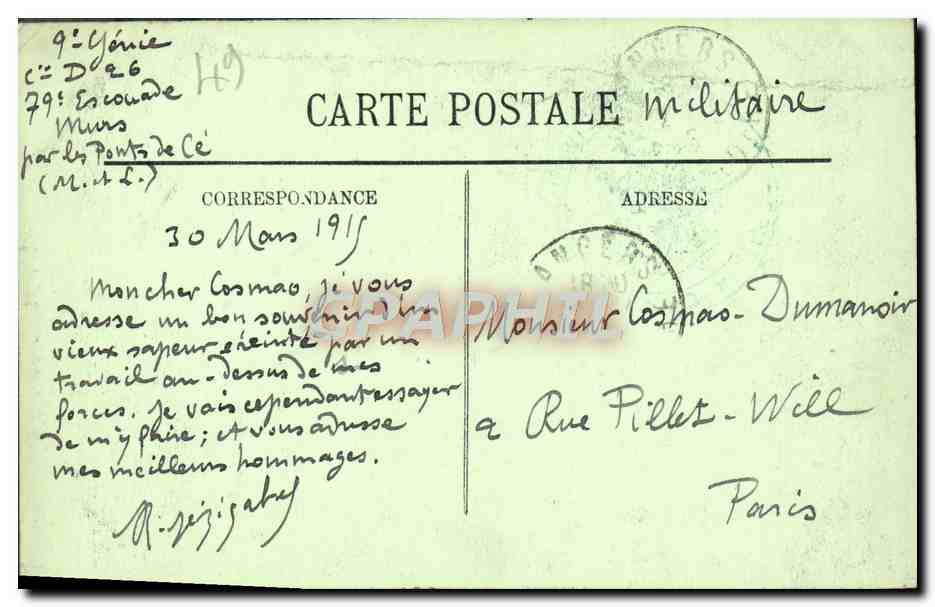 9e Génie
Cie D 26
79e Escouade
Murs
par les Ponts de Cé
(M. et L.)
49
CARTE POSTALE militaire
ANGERS
CORRESPONDANCE
30 Mars 1915
Mon cher Cosmao, je vous
adresse un bon souvenir d'un
vieux sapeur éreinté par un
travail au-dessus de mes
forces. Je vais cependant essayer
de m'y faire ; et vous adresse
mes meilleurs hommages.
ADRESSE
ANGERS
Monsieur Cosmao-Dumanoir
2 Rue Pillet-Will
Paris
CPAPHIL